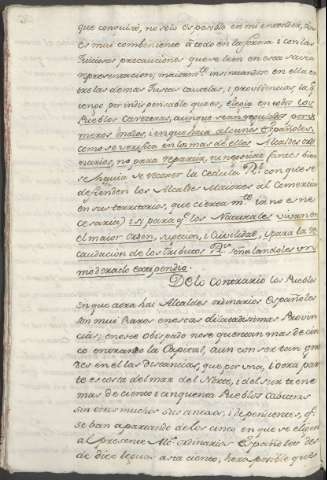 que consulté, no solo es posible en mi entender,
es mui combeniente à todo en la forma i con las
Juiciosas precauciones que se léen en esta
representacion; maiormte. insinuandose en ella entre
las demas Justas causales, i providencias, la q.
tengo por indispensable que es, elegir en todos los
Pueblos Cavezeras, aunque sean regulados por
meros Indios, i en que haia algunos Españoles,
como se verifica en los mas de ellos Alcaldes ordi-
narios, no para repartir, ni negociar
se seguia de recoger la Cedula Rl. con que se
defienden los Alcaldes Maiores al Comercio
en sus territorios, que ciertamte. ia no es ne
cesaria) i sí para q. los Naturales vivan en
el maior orden, sugecion, i Civilidad, i para la re
caudacion de los tributos Rs. señalandoles un
moderado estipendio.
De lo contrario los Pueblos
en que aora hai Alcaldes ordinarios Españoles
son mui raros en estas dilatadisimas Provin
cias; en este obispado no se quentan mas de cin
co entrando la Capital, aun con ser tan gran
des en el las distancias, que por una, i otra par
te es costa del mar del Norte, i del sur i tiene
mas de ciento i cinquenta Pueblos cabezeras
sin otros muchos sus anexos, i dependientes,
se ban apartando de los cinco en que se eligen
al presente Alcs. ordinarios Españoles des
de diez leguas asia ciento, hera posible que